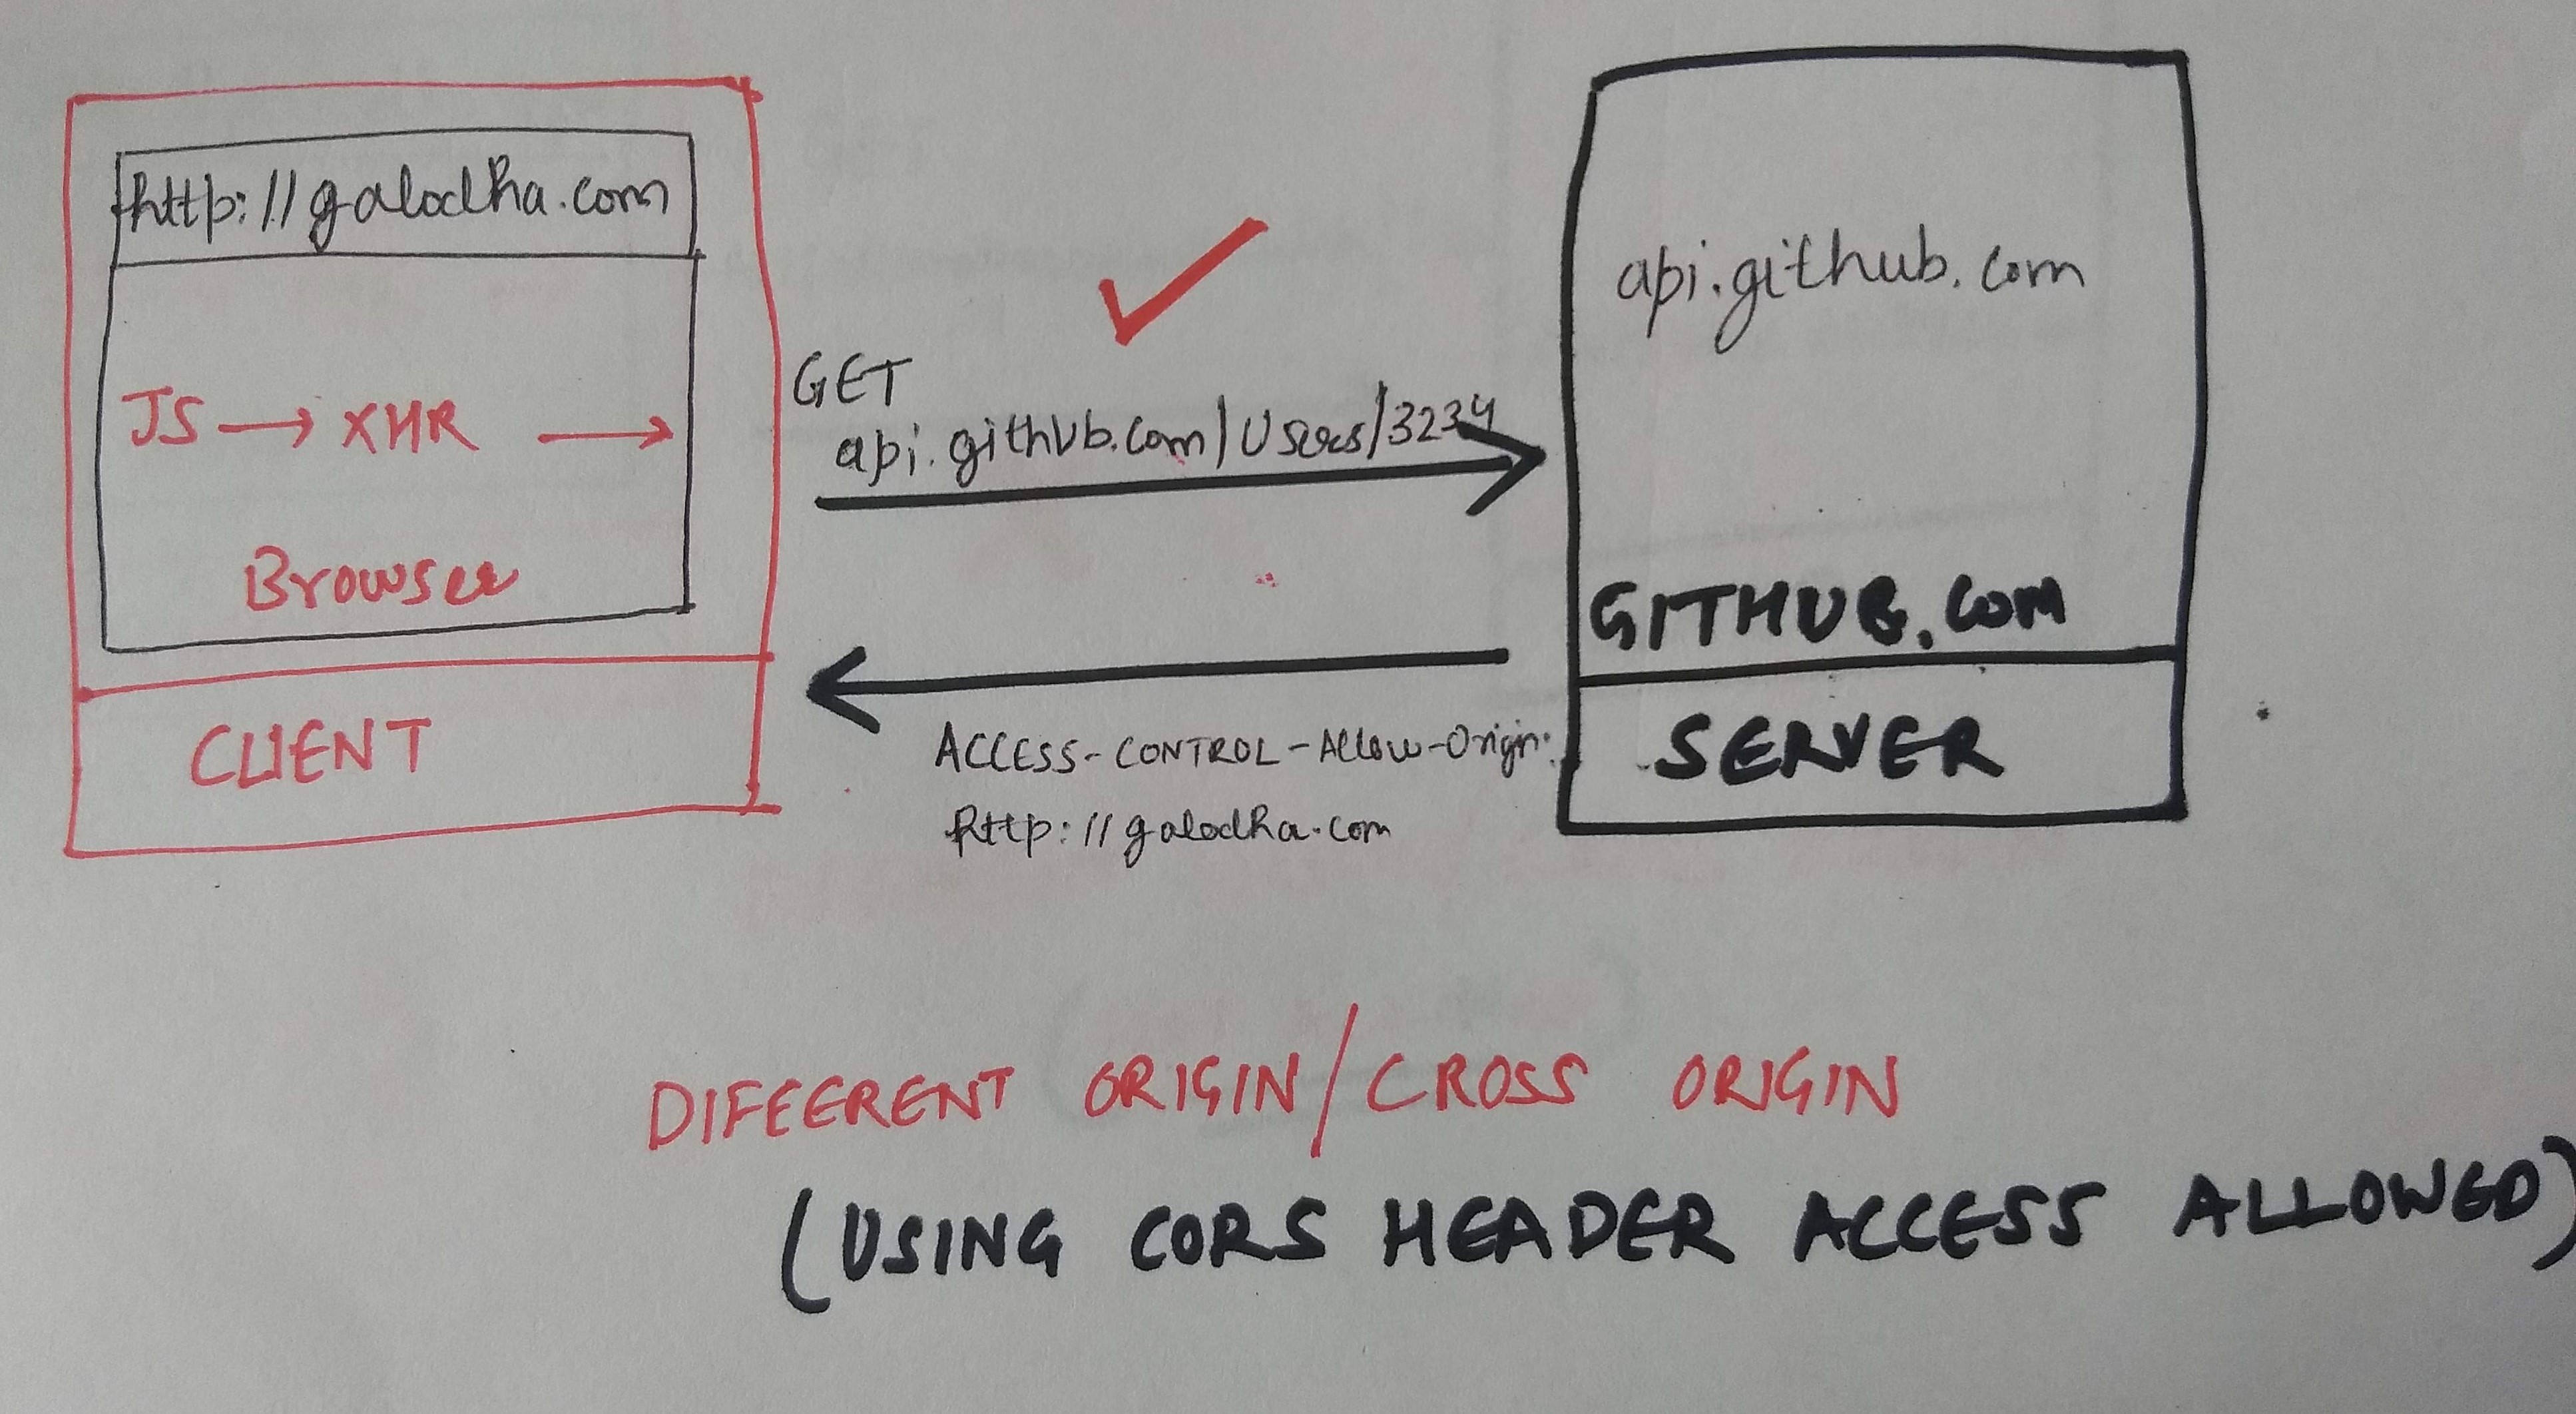 http://galodha.com
JS → XHR →
Browser
CLIENT
GET
api.github.com/Users/3234
ACCESS-CONTROL-Allow-Origin:
http://galodha.com
api.github.com
GITHUB.COM
SERVER
DIFEERENT ORIGIN/CROSS ORIGIN
(USING CORS HEADER ACCESS ALLOWED)